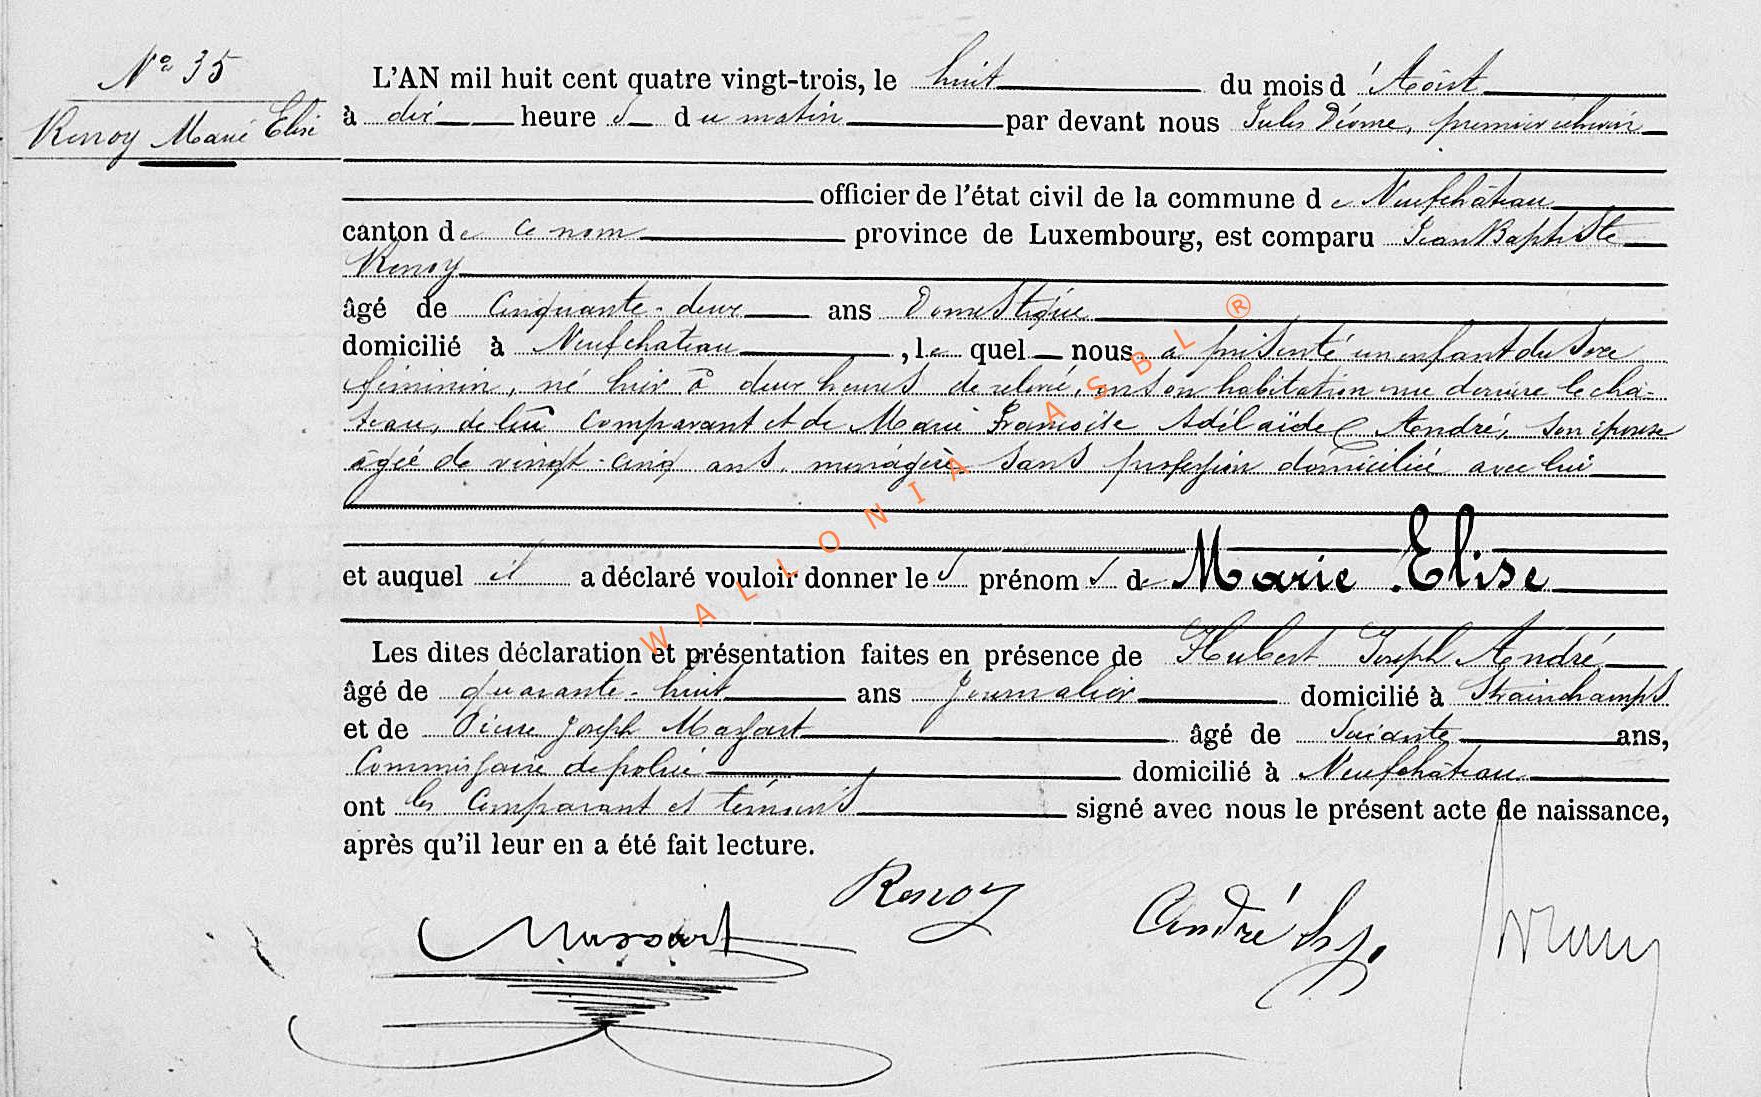 Nº 35
Renoy Marie Elise
L'AN mil huit cent quatre vingt-trois, le huit du mois d'Août
à dix heures du matin par devant nous Jules premier échevin
officier de l'état civil de la commune de Neufchâteau
canton de ce nom province de Luxembourg, est comparu Jean Baptiste
Renoy
âgé de cinquante-deux ans Domestique
domicilié à Neufchateau, lequel nous a présenté un enfant du sexe
féminin, né hier à deux heures de relevé, en son habitation rue derrière le châ-
teau, de lui comparant et de Marie Françoise Adélaïde André, son épouse
âgée de vingt-cinq ans, ménagère sans profession domiciliée avec lui
et auquel il a déclaré vouloir donner les prénoms de Marie Elise
Les dites déclaration et présentation faites en présence de Hubert Joseph André
âgé de quarante-huit ans Journalier domicilié à Strainchamps
et de Pierre Joseph Massart âgé de soixante ans,
Commissaire de police domicilié à Neufchâteau
ont les comparant et témoins signé avec nous le présent acte de naissance,
après qu'il leur en a été fait lecture.
Renoy
Massart
André h j.
WALLONIA ASBL ®